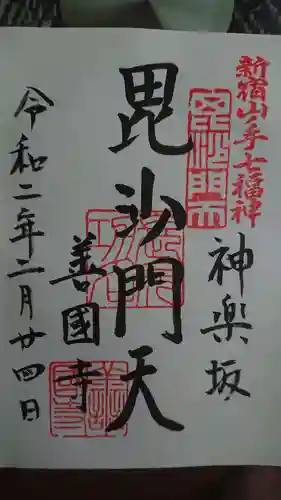 新宿山手七福神
神楽坂
毘沙門天
善國寺
令和二年二月廿四日